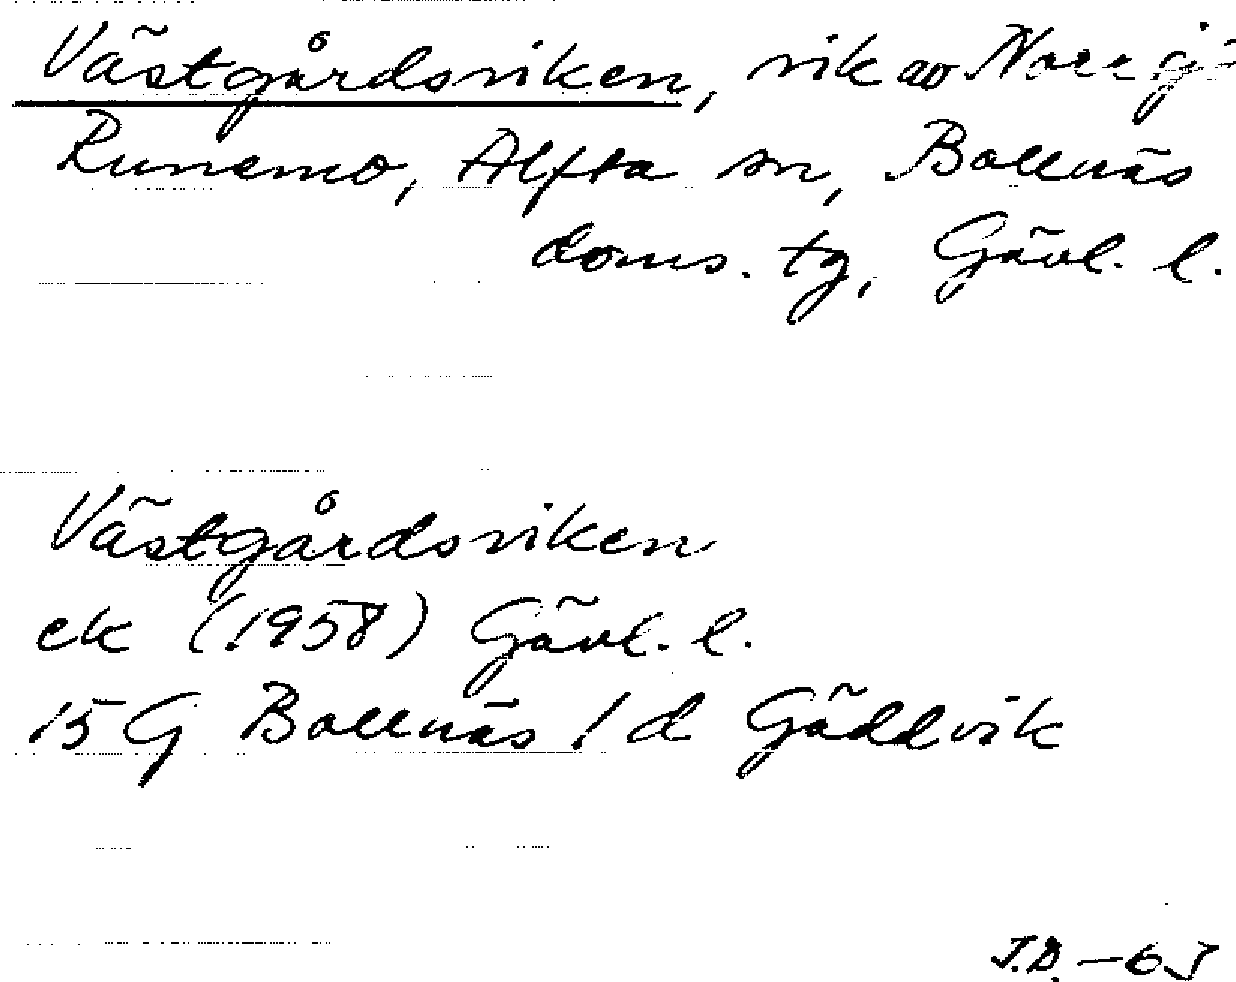 Västgårdsviken, vik av
Runemo, Alfta sn, Bollnäs
doms. tg, Gävl. l.
Västgårdsviken
ek (1958) Gävl. l.
15 G Bollnäs 1 d Gäddvik